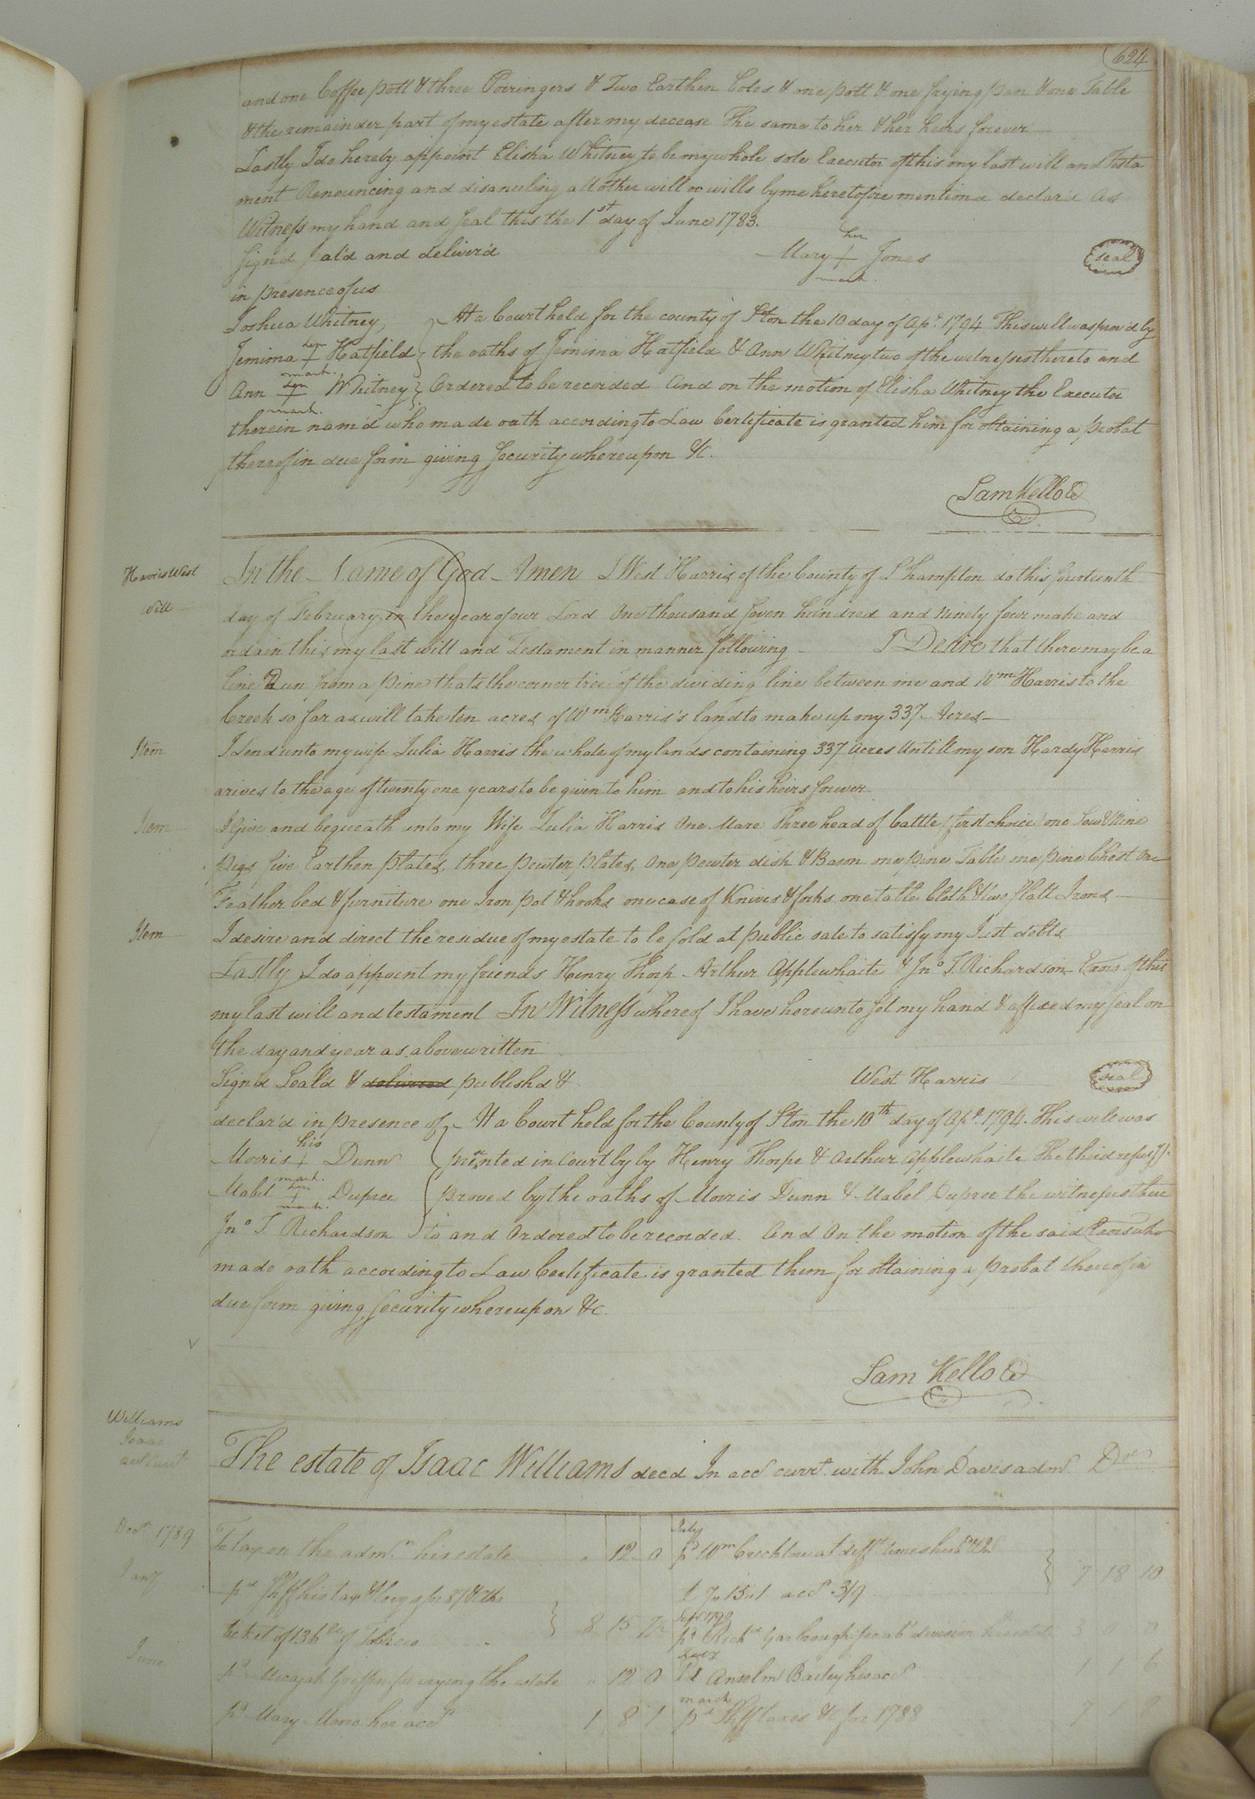 624
and one Coffee pott & three Poiringers & Two Earthen Boles & one pott & one frying pan & one Table
& the remainder part of my estate after my decease The same to her & her heirs forever
Lastly I do hereby appoint Elisha Whitney to be my whole sole Executor of this my last will and Testa
ment Renouncing and disanuling all other will or wills by me heretofore mention'd declar'd As
Witness my hand and seal this the 1st day of June 1783.
Sign'd seal'd and deliver'd
her
Mary + Jones
mark.
seal
in presence of us
Joshua Whitney,
At a Court held for the county of S'ton the 10 day of Apl. 1794 This will was prov'd by
Jemima her + mark. Hatfield
the oaths of Jemima Hatfield & Ann Whitney two of the witnesses thereto and
Ann her + mark. Whitney
Ordered to be recorded And on the motion of Elisha Whitney the Executor
therein nam'd who made oath according to Law Certificate is granted him for obtaining a probat
thereof in due form giving security whereupon &c.
Sam Kello
Harris West
Will
In the Name of God Amen I West Harris of the County of S'hampton do this fourteenth
day of February in the year of our Lord One thousand seven hundred and ninety four make and
ordain this my last will and Testament in manner following I Desire that there may be a
line Run from a pine thats the corner tree of the dividing line between me and Wm Harris to the
Creek so far as will take ten acres of Wm Harris's land to make up my 337 Acres
Item I lend unto my wife Julia Harris the whole of my lands containing 337 acres Untill my son Hardy Harris
arives to the age of twenty one years to be given to him and to his heirs forever
Item I Give and bequeath unto my Wife Julia Harris One Mare three head of Cattle first choice one Sow & Nine
Pigs five Earthen plates, three pewter plates, One pewter dish & Bason one pine Table one pine Chest One
Feather bed & furniture one Iron pot & hooks one case of Knives & forks one table cloth & two flatt Irons
Item I desire and direct the residue of my estate to be sold at public sale to satisfy my Just debts
Lastly I do appoint my friends Henry Thorp Arthur Applewhaite & Jno T. Richardson Exors of this
my last will and testament In Witness whereof I have hereunto set my hand & affixed my seal on
the day and year as above written
Sign'd Seal'd & delivered publish'd &
West Harris
seal
declar'd in presence of
At a Court held for the County of S'ton the 10th day of Apl. 1794. This will was
Morris his + mark. Dunn
prsented in Court by by Henry Thorpe & Arthur Applewhaite the third
Mabel her + mark. Dupree
proved by the oaths of Morris Dunn & Mabel Dupree the witnesses there
Jno T. Richardson
to and Ordered to be recorded. And On the motion of the said Exors who
made oath according to Law Certificate is granted them for obtaining a probat thereof in
due form giving security whereupon &c.
Sam Kello
Williams
Isaac
account
The estate of Isaac Williams decd In acct currt. with John Davis admr Dr
1789
To tax on the admn. his estate 12 0
July
pd Wm at difft times
7 18 10
Jany
pd
acct 3/9
8 15
June
pd Micajah Griffin surveying the estate 12 0
pd Anselm Bailey his acct 1 1 6
pd Mary his acct 1 8 1
march
pd taxes &c for 1788